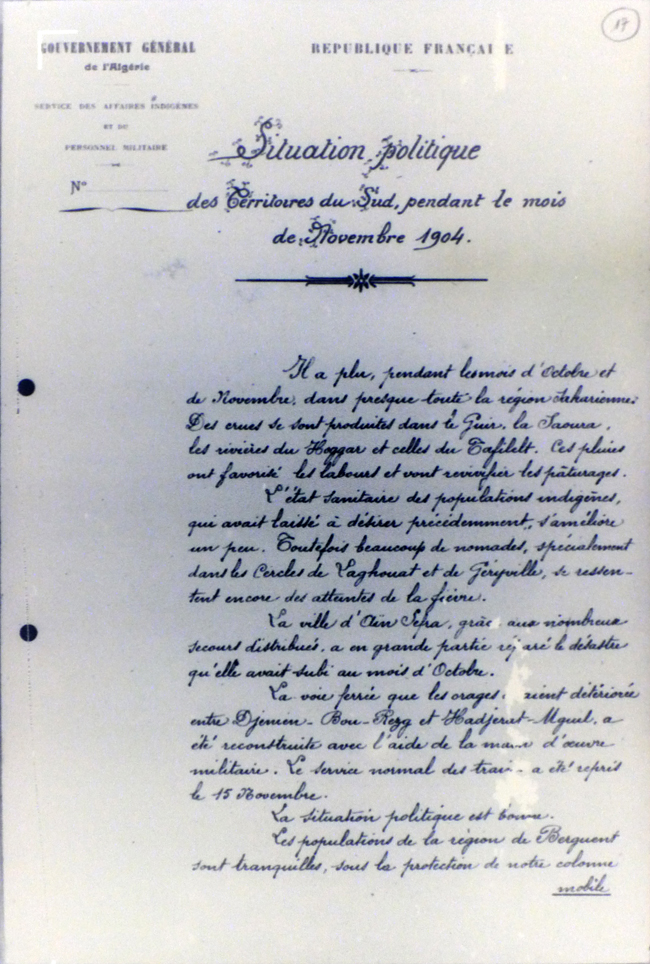 17
GOUVERNEMENT GÉNÉRAL
de l'Algérie
REPUBLIQUE FRANÇAI E
SERVICE DES AFFAIRES INDIGÈNES
ET DU
PERSONNEL MILITAIRE
N°
Situation politique
des Territoires du Sud, pendant le mois
de Novembre 1904.
Il a plu, pendant les mois d'Octobre et
de Novembre, dans presque toute la région saharienne.
Des crues se sont produites dans le Guir, la Saoura,
les rivières du Hoggar et celles du Tafilelt. Ces pluies
ont favorisé les labours et vont revivifier les pâturages.
L'état sanitaire des populations indigènes,
qui avait laissé à désirer précédemment, s'améliore
un peu. Toutefois beaucoup de nomades, spécialement
dans les Cercles de Laghouat et de Géryville, se ressen-
tent encore des atteintes de la fièvre.
La ville d'Aïn Sefra, grâc aux nombreux
secours distribués, a en grande partie réparé le désastre
qu'elle avait subi au mois d'Octobre.
La voie ferrée que les orages aient détériorée
entre Djenien-Bou-Rezg et Hadjerat-Mguil, a
été reconstruite avec l'aide de la main d'œuvre
militaire. Le service normal des trai a été repris
le 15 Novembre.
La situation politique est bonne.
Les populations de la région de Berguent
sont tranquilles, sous la protection de notre colonne
mobile